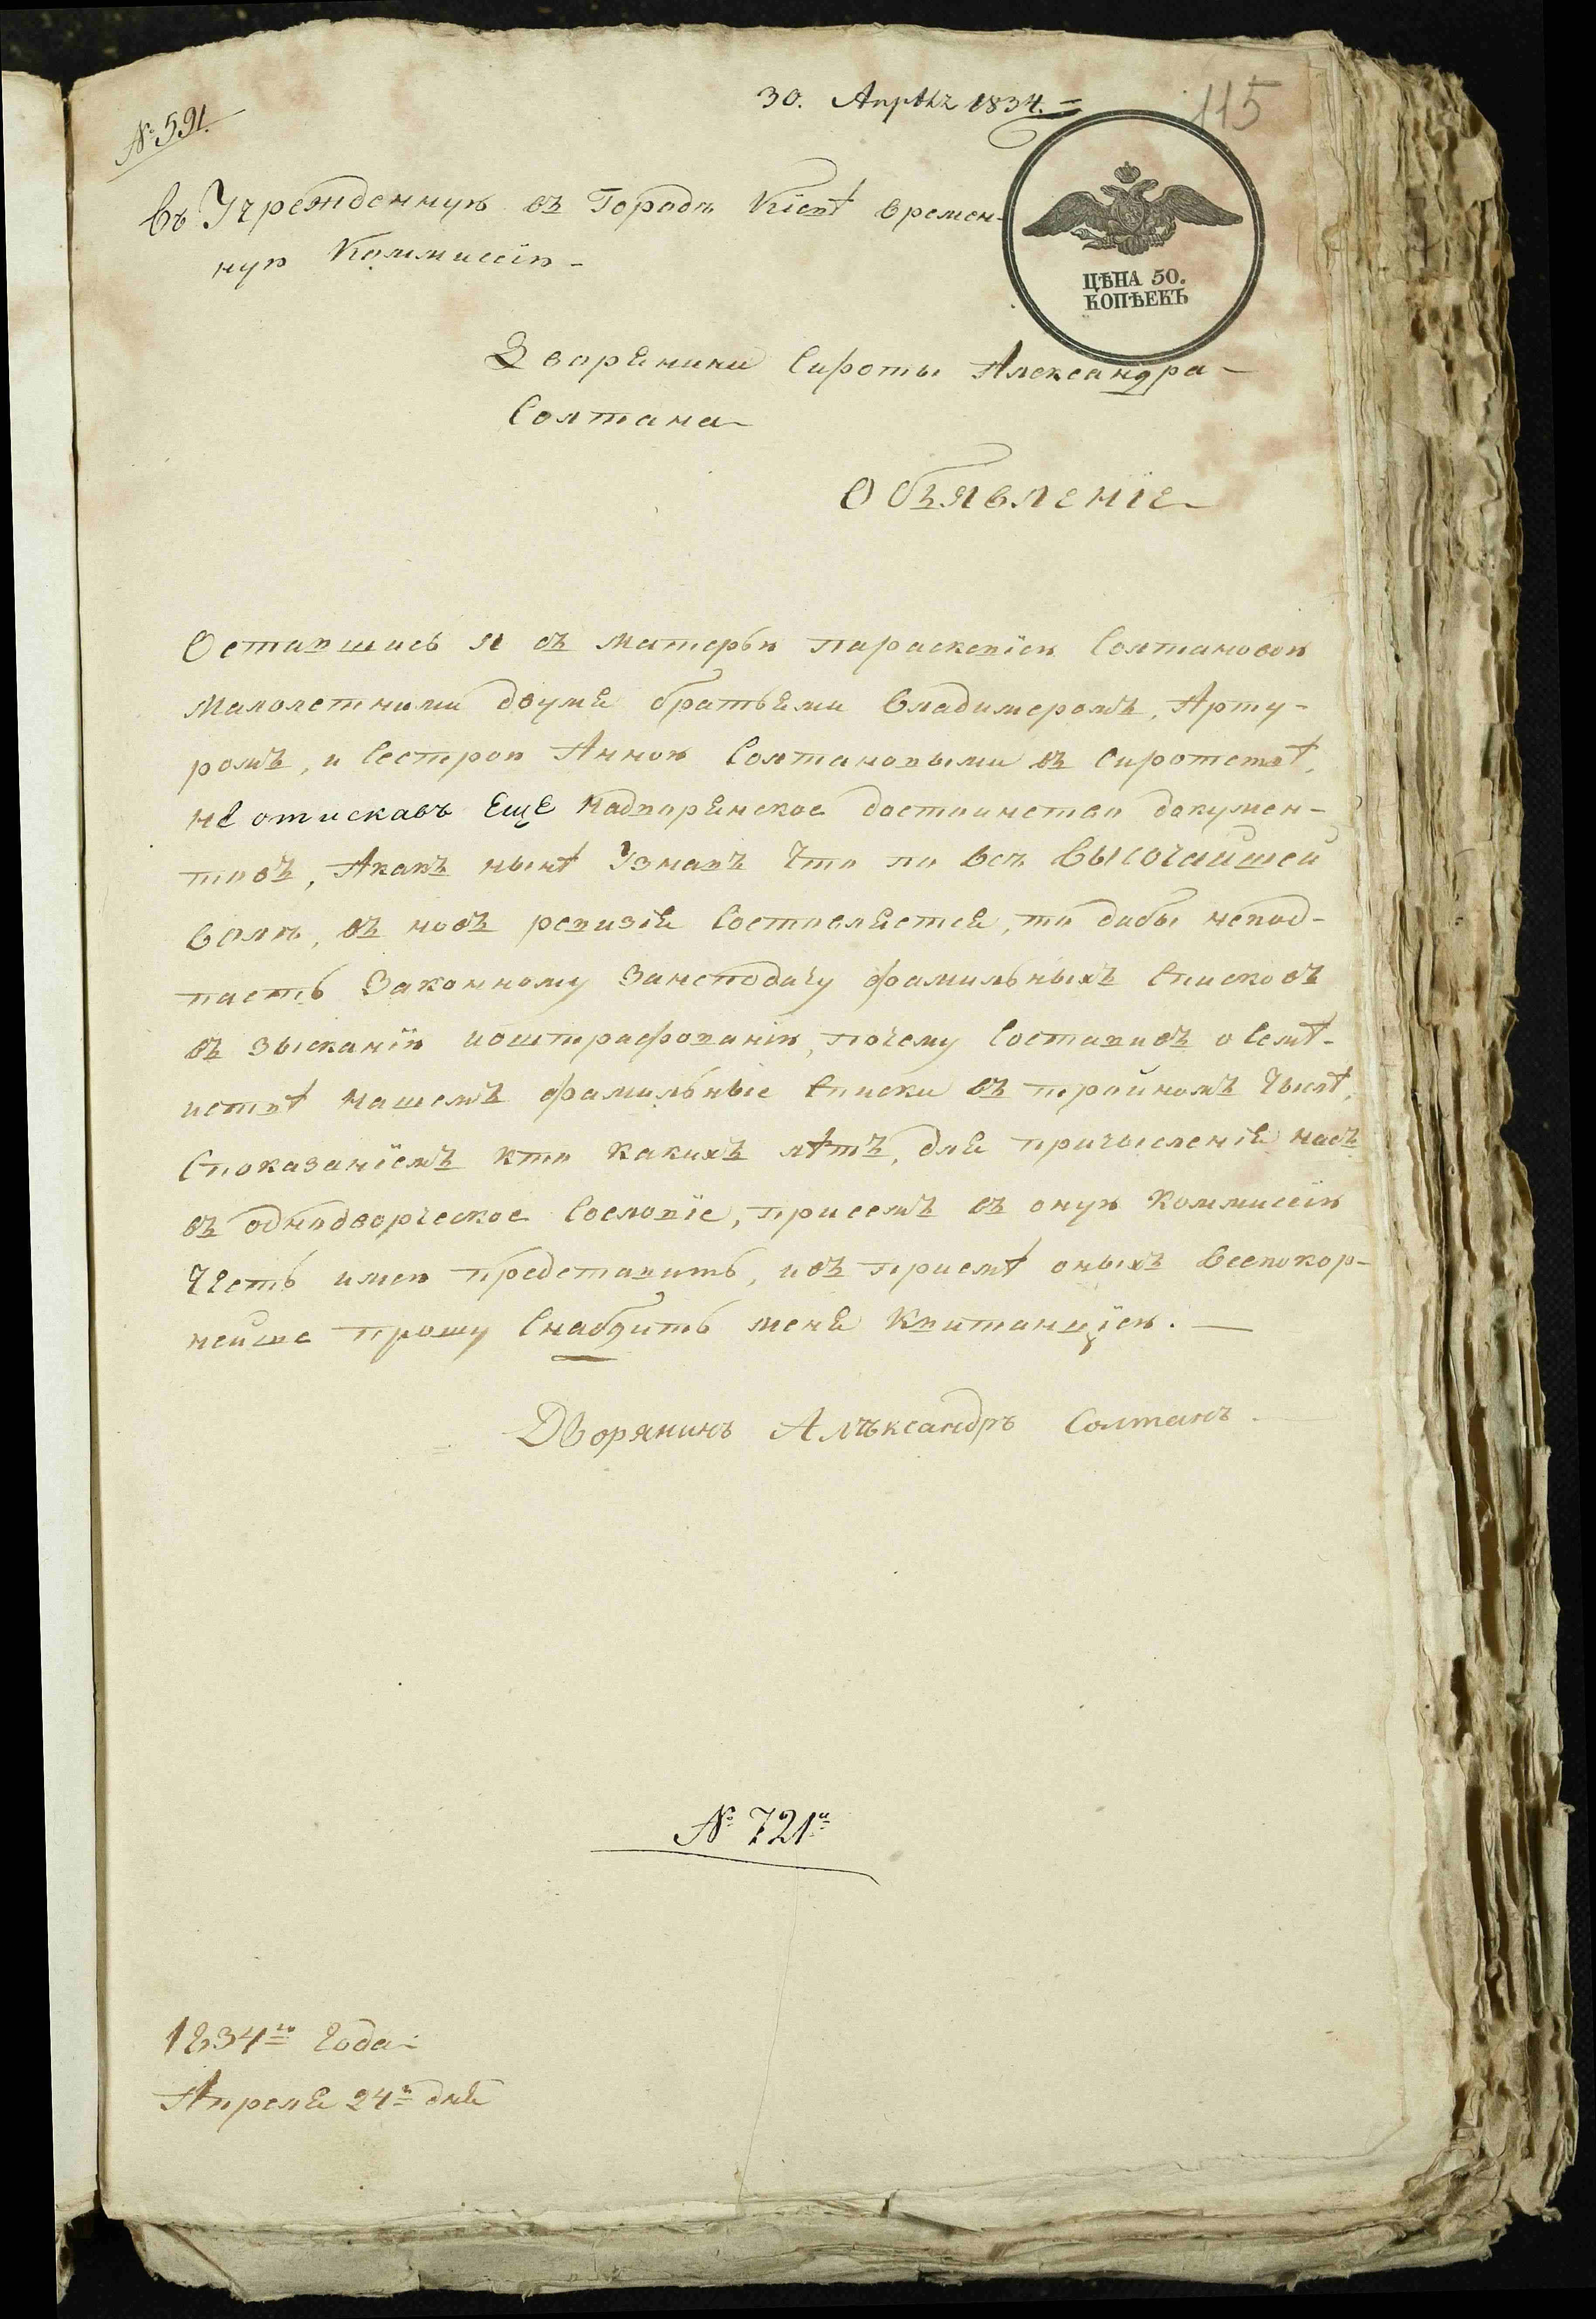 № 591.
30. Апрѣль 1834.
115
Въ Учрежденную въ Городѣ Кіевѣ времен-
ную Коммиссію
ЦѢНА 50.
КОПѢЕКЪ
Дворянина Сироты Александра
Солтана
Объявленіе
Оставшись я съ матерью Параскевіею Солтановою
малолетними двумя братьями Владимеромъ, Арту-
ромъ, и Сестрою Анною Солтановыми въ Сиротствѣ,
не отискавъ еще надворянское достоинство докумен-
товъ, Акакъ нынѣ Узнавъ что по все Высочайшей
волѣ, въ новъ ревизія Составляется, то дабы непод-
пасть Законному Занеподачу фамильныхъ Списковъ
въ зысканію иоштрафованію, почему Составивъ о Семѣ-
иствѣ нашемъ фамильные Списки въ тройномъ Числѣ,
Споказаніемъ кто какихъ лѣтъ, для причысленія насъ
въ однодворческое Сословіе, присемъ въ оную Коммиссію
Честь имею представить, ивъ приемѣ оныхъ Всепокор-
нейше прошу Снабдить меня Квитанціею.
Дворянинъ Алѣксандръ Солтанъ
№ 721й
1834го Года
Апреля 24го дня